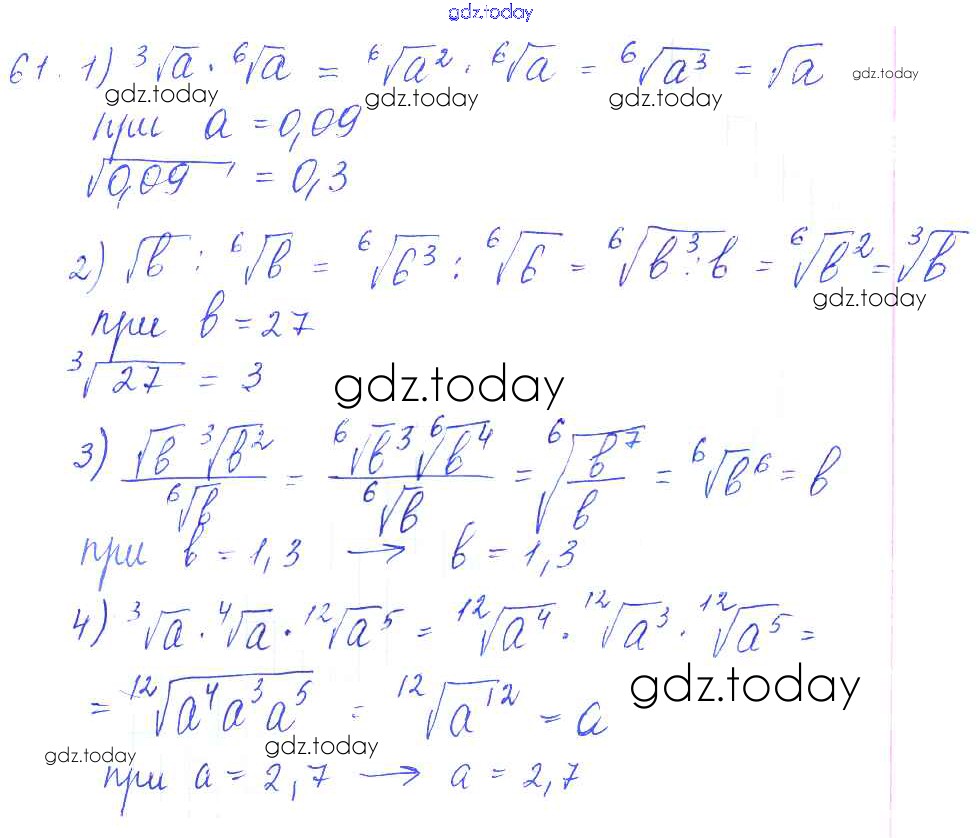 gdz.today
61. 1) ³√a · ⁶√a = ⁶√a² · ⁶√a = ⁶√a³ = √a gdz.today
gdz.today gdz.today gdz.today
при a = 0,09
√0,09 = 0,3
2) √b : ⁶√b = ⁶√b³ : ⁶√b = ⁶√b³:b = ⁶√b² = ³√b
gdz.today
при b = 27
³√27 = 3
gdz.today
3) √b ³√b² / ⁶√b = ⁶√b³ ⁶√b⁴ / ⁶√b = ⁶√b⁷/b = ⁶√b⁶ = b
при b = 1,3 → b = 1,3
4) ³√a · ⁴√a · ¹²√a⁵ = ¹²√a⁴ · ¹²√a³ · ¹²√a⁵ =
= ¹²√a⁴a³a⁵ = ¹²√a¹² = a
gdz.today
gdz.today gdz.today
при a = 2,7 → a = 2,7